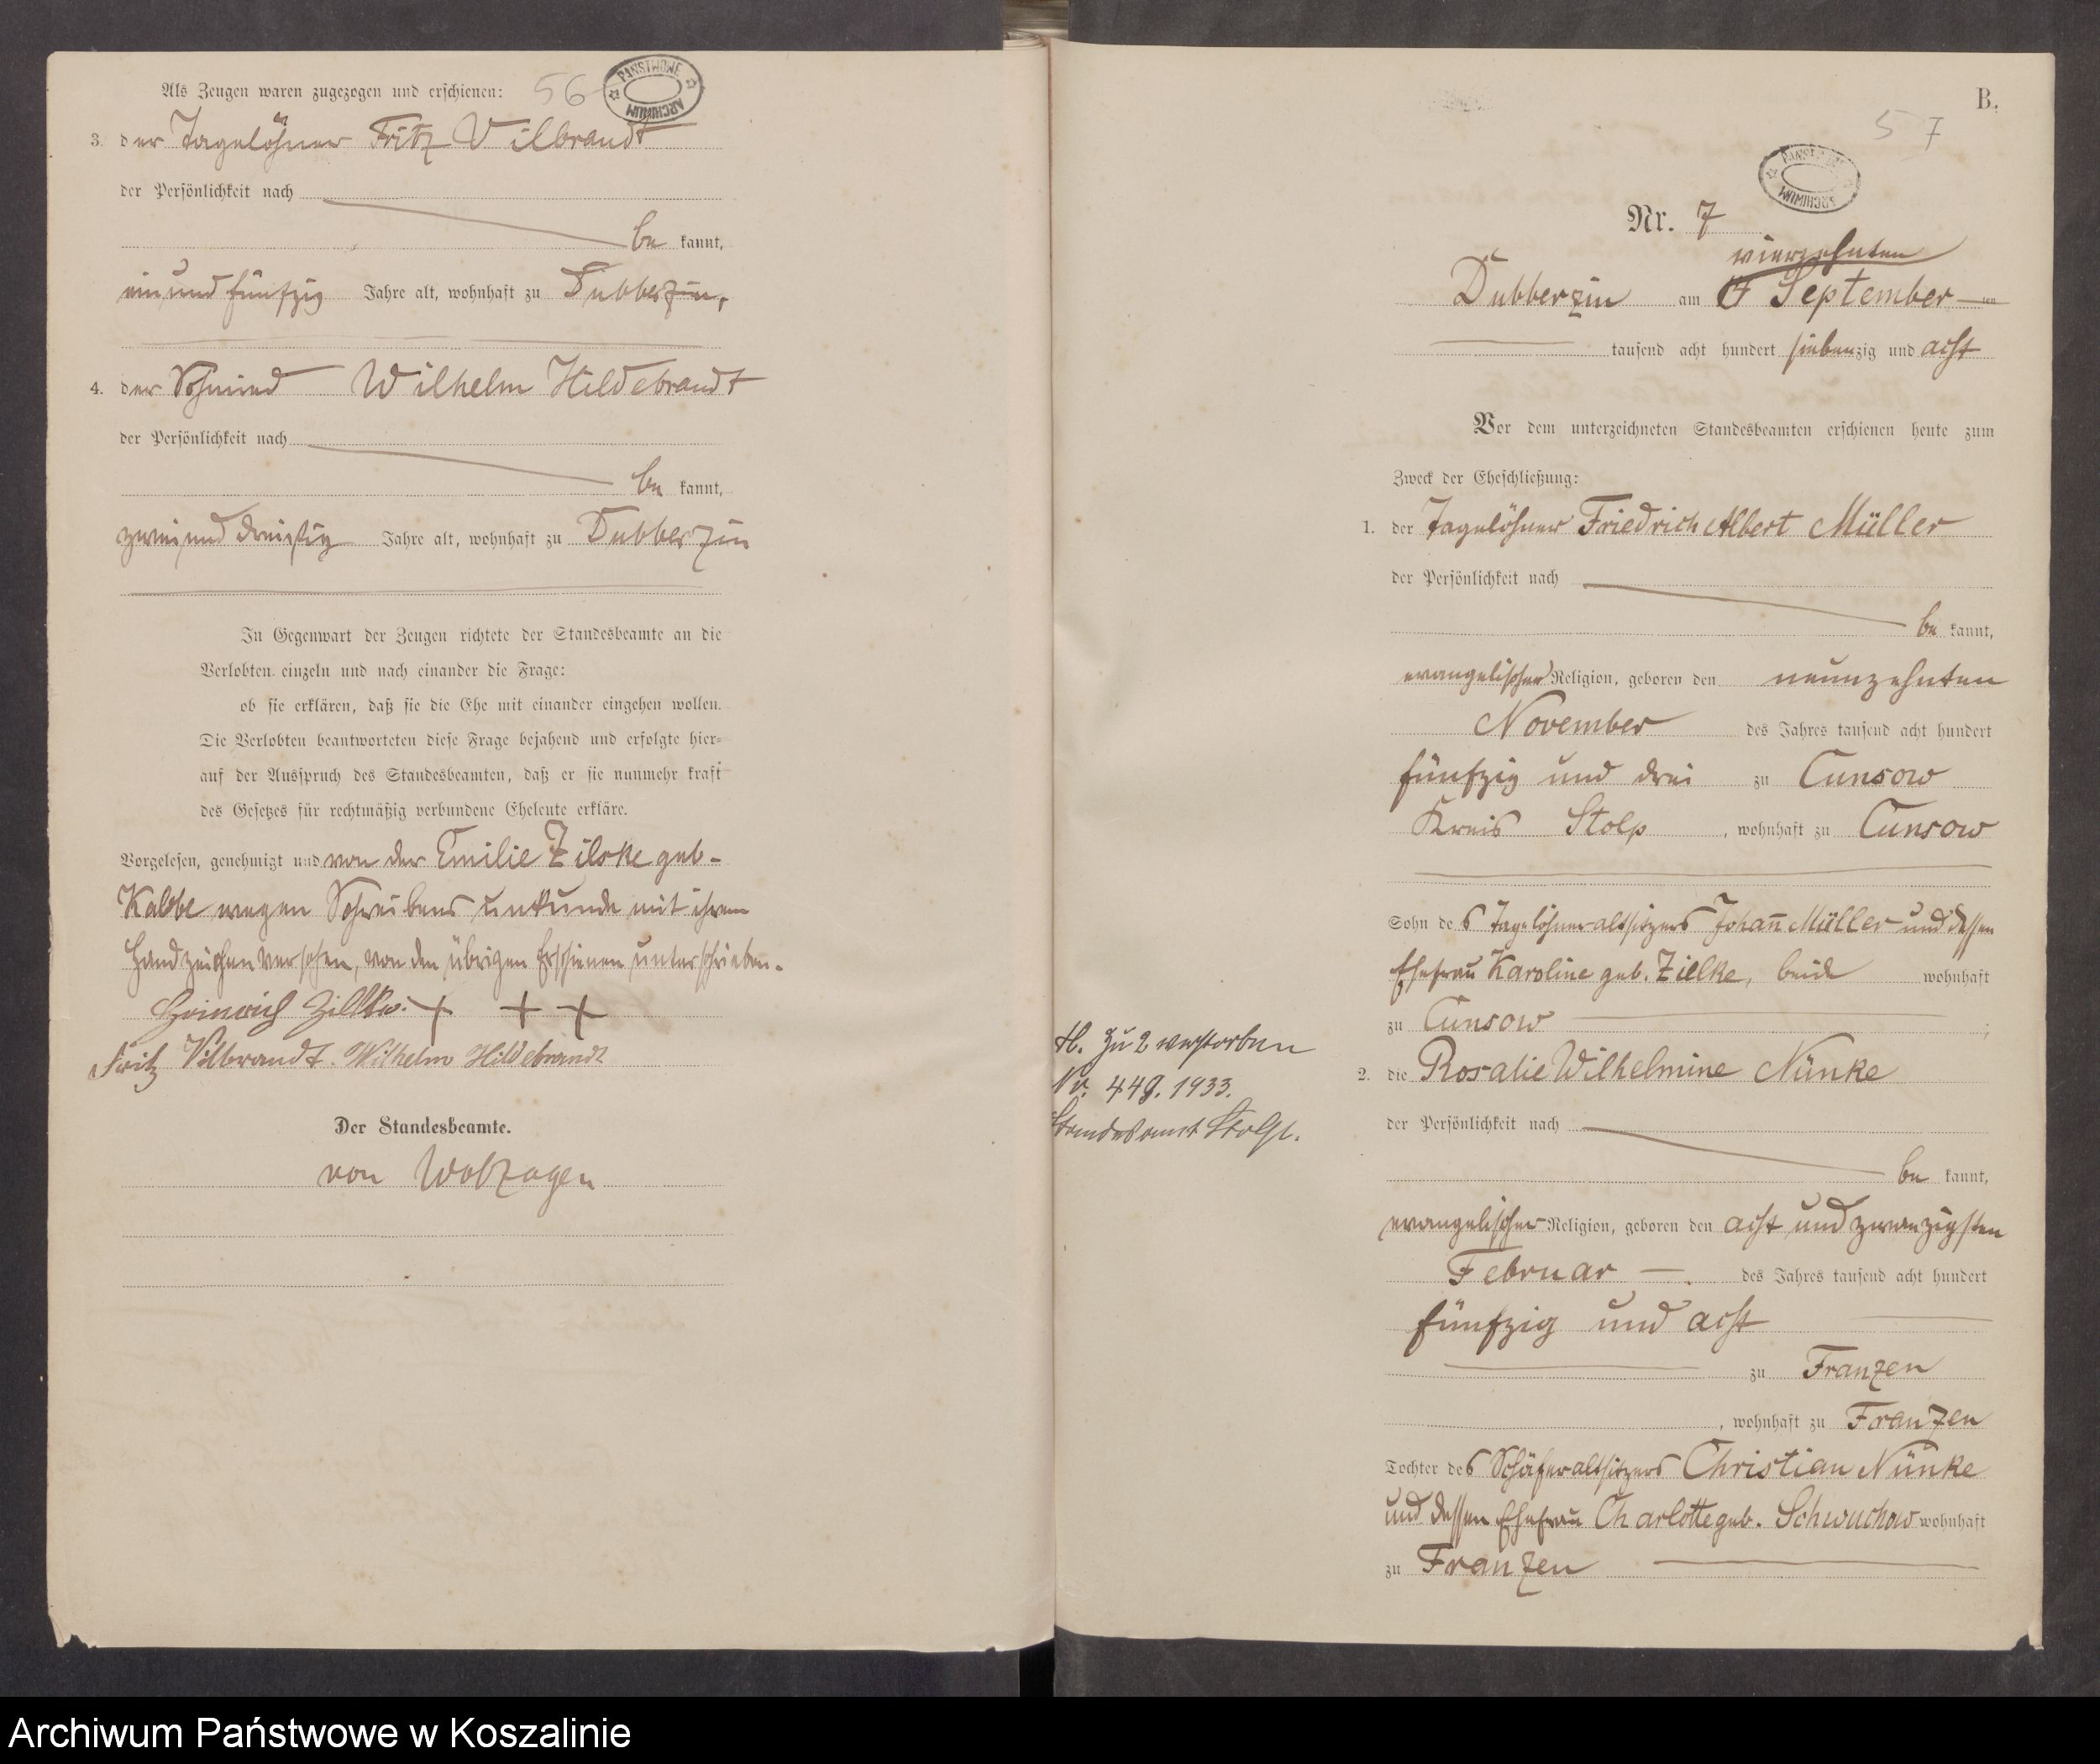 Als Zeugen waren zugezogen und erschienen:
56
PAŃSTWOWE ARCHIWUM
3. der Tagelöhner Fritz Vilbrandt
der Persönlichkeit nach
be kannt,
ein und fünfzig Jahre alt, wohnhaft zu Dubberzin,
4. der Schmied Wilhelm Hildebrandt
der Persönlichkeit nach
be kannt,
zwei und dreißig Jahre alt, wohnhaft zu Dubberzin
In Gegenwart der Zeugen richtete der Standesbeamte an die
Verlobten einzeln und nach einander die Frage:
ob sie erklären, daß sie die Ehe mit einander eingehen wollen.
Die Verlobten beantworteten diese Frage bejahend und erfolgte hier-
auf der Ausspruch des Standesbeamten, daß er sie nunmehr kraft
des Gesetzes für rechtmäßig verbundene Eheleute erkläre.
Vorgelesen, genehmigt und von der Emilie Zilske geb-
Kabbe wegen Schreibens unkunde mit ihrem
Handzeichen versehen, von den übrigen Erschienen unterschrieben.
Heinrich + + +
Fritz Vilbrandt. Wilhelm Hildebrandt
Der Standesbeamte.
von Wolzogen
B.
57
PAŃSTWOWE ARCHIWUM
Nr. 7
vierzehnten
Dubberzin am September ten
tausend acht hundert siebenzig und acht
Vor dem unterzeichneten Standesbeamten erschienen heute zum
Zweck der Eheschließung:
1. der Tagelöhner Friedrich Albert Müller
der Persönlichkeit nach
be kannt,
evangelischer Religion, geboren den neunzehnten
November des Jahres tausend acht hundert
fünfzig und drei zu Cunsow
Kreis Stolp, wohnhaft zu Cunsow
Sohn des Tagelöhner-altsitzers Johann Müller und dessen
Ehefrau Karoline geb. Zielke, beide wohnhaft
zu Cunsow ;
2. die Rosalie Wilhelmine Nünke
der Persönlichkeit nach
be kannt,
evangelischer Religion, geboren den acht und zwanzigsten
Februar des Jahres tausend acht hundert
fünfzig und acht
zu Franzen
, wohnhaft zu Franzen
Tochter des Schäferaltsitzers Christian Nünke
und dessen Ehefrau Charlotte geb. Schwuchow wohnhaft
zu Franzen
H. Zu 2 verstorben
Nr. 449. 1933.
Standesamt Stolp.
Archiwum Państwowe w Koszalinie